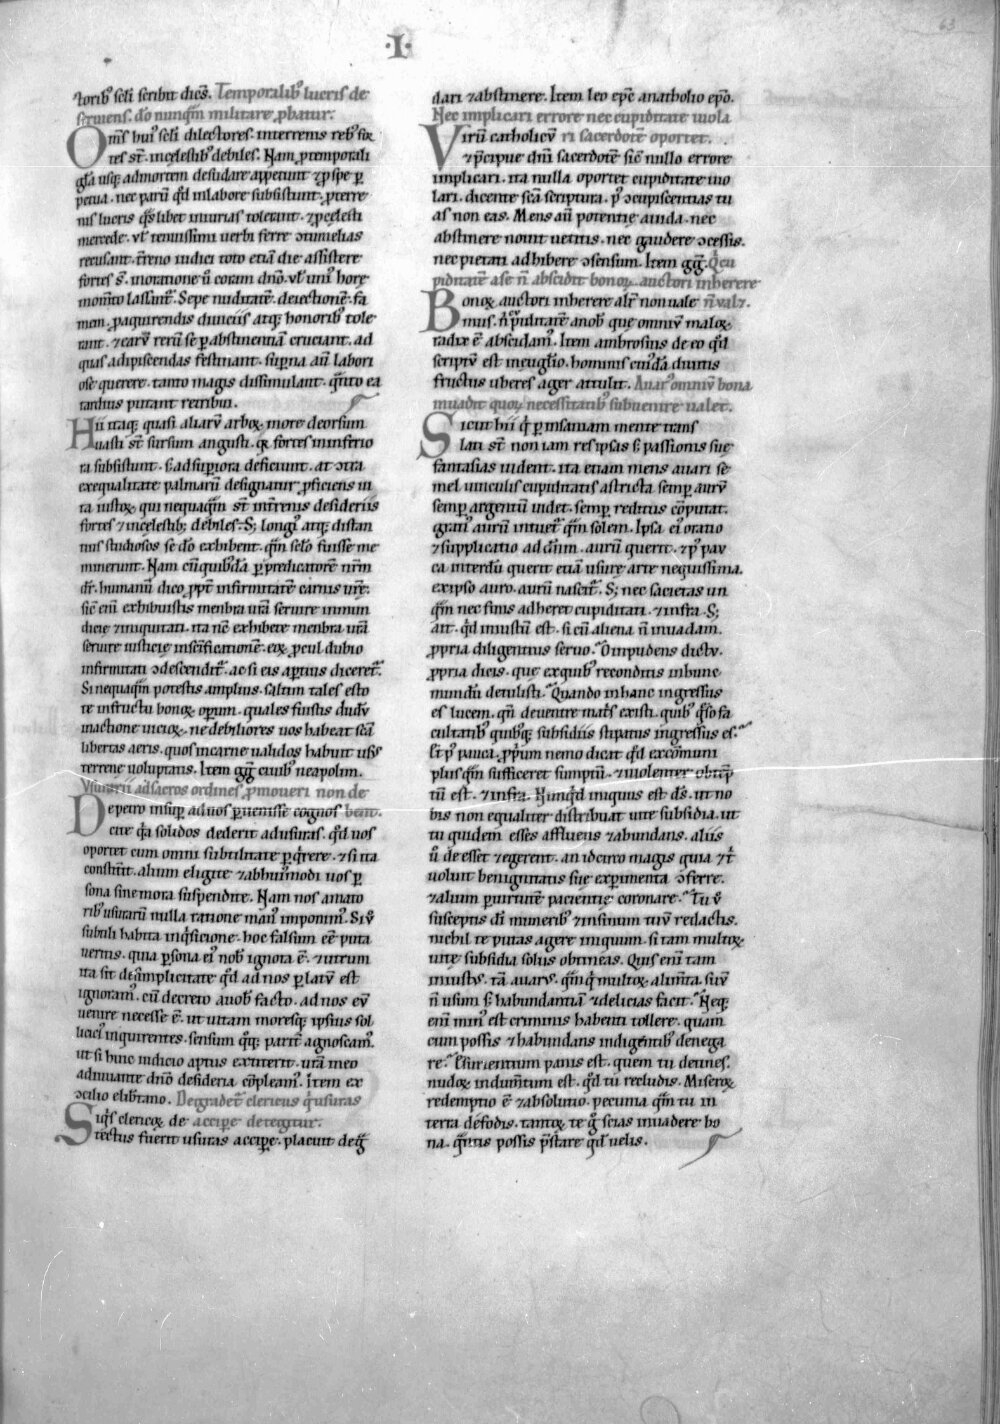 63
·I·
torib; scłi scribit dicẽs. Temporalib; lucris de
seruiens. dõ nunq̃m militare ꝓbatur.
Om̃s hui; scłi dilectores. interrenis reb; for
tes st̃. incęlestib; debiles. Nam ꝓtemporali
głia usq; admortem desudare appetunt ⁊ꝓspe ꝑ
petua. nec parũ qd̃ inlabore subsistunt. ꝓterre
nis lucris q̃slibet iniurias tolerant. ⁊ꝓcęlesti
mercede. uł tenuissimi uerbi ferre ↄtumelias
recusant. t̃reno iudici toto etiã die assistere
fortes s̃t. inoratione ũ coram dño. uł uni; horę
mom̃to lassant̃. Sepe nuditatẽ. deiectionẽ. fa
mem. ꝓaquirendis diuiciis atq; honorib; tole
rant. ⁊earũ rerũ se ꝑabstinentiã cruciant. ad
quas adipiscendas festinant. suꝑna aũ labori
ose querere. tanto magis dissimulant. q̃nto ea
tardius putant retribui.
Hii itaq; quasi aliarũ arboꝝ more deorsum
uasti st̃ sursum angusti. q̃ fortes ininferio
ra subsistunt. s; adsuꝑiora deficiunt. at ↄtra
exequalitate palmarũ designatur ꝓficiens ui
ta iustoꝝ. qui nequaq̃m st̃ int̃renis desideriis
fortes ⁊incęlestib; debiles. S; longi; atq; distan
tius studiosos se dõ exhibent. q̃m scło fuisse me
minerunt. Nam cũ quib;dã ꝑpredicatorẽ nr̃m
dr̃. humanũ dico ꝓpt̃ infirmitatẽ carnis ur̃ę.
sic̃ eni exhibuistis menbra ur̃a seruire inmun
dicię ⁊iniquitati. ita nc̃ exhibere menbra ur̃a
seruire iusticię insc̃ificationẽ. eoꝝ ꝓcul dubio
infirmitati ↄdescendit̃. ac si eis aꝑtius diceret̃.
Si nequaq̃m potestis amplius. saltim tales esto
te infructu bonoꝝ oꝑum. quales fuistis dudũ
inactione uicioꝝ. ne debiliores nos habeat sc̃a
libertas aeris. quos incarne ualidos habuit us;
terrenę uoluptatis. Item gg̃ ciuib; neapolim.
Vsurarii adsacros ordines ꝓmoueri non de
Depetro insuꝑ aduos ꝑuenisse cognos bent.
cite q̃a solidos dederit adusuras. qd̃ uos
oportet cum omni subtilitate ꝑq̃rere. ⁊si ita
constit̃it. alium eligite ⁊abhui;modi uos ꝑ
sona sinemora suspendite. Nam nos amato
rib; usurarũ nulla ratione man; imponim;. Siũ
subtili habita inq̃sicione. hoc falsum eẽ puta
ueritis. quia ꝑsona ei; nob; ignota ẽ. ⁊utrum
ita sit deˢimplicitate qd̃ ad nos ꝑlatũ est
ignoram;. cũ decreto auob; facto. ad nos eũ
uenire necesse ẽ. ut uitam moresq; ipsius sol
licici; inquirentes. sensum q̃q; parit̃ agnoscam;.
ut si huic iudicio aptus extiterit. ur̃ã meo
adiuuante dño desideria cõpleam;. Item ex
ↄcilio elibrano. Degradet̃ clericus q̃usuras
Siq̃s clericoꝝ de accipe detegitur.
tectus fuerit usuras acciꝑe. placuit deg̃
dari ⁊abstinere. Item leo epc̃ anatholio epo.
Nec implicari errore nec cupiditate uiola
Virũ catholicũ ri sacerdotẽ oportet.
⁊p̃cipue dñi sacerdotẽ sic̃ nullo errore
implicari. ita nulla oportet cupiditate uio
lari. dicente sc̃a scriptura. p; ↄcupiscentias tu
as non eas. Mens aũ potentię auida. nec
abstinere nouit uetitis. nec gaudere ↄcessis.
nec pietati adhibere ↄsensum. Item gg̃. Q̃cu
piditatẽ ase ñ abscidit bonoꝝ auctori inherere
Bonoꝝ auctori inherere alit̃ non uale ñ ualꝫ.
mus. ñ cupiditatẽ anob; que omniũ maloꝝ
radix ẽ abscidam;. Item ambrosius de eo qd̃
scriptũ est ineuglio. hominis cui;dã diuitis
fructus uberes ager attulit. Auar; omniũ bona
inuadit quoꝝ necessitatib; subuenire ualet.
Sicut hii q̃ ꝑ insaniam mente trans
lati st̃ non iam res ipsas s; passionis suę
fantasias uident. ita etiam mens auari se
mel uinculis cupiditatis astricta semꝑ aurũ
semꝑ argentũ uidet. semꝑ reditus cõputat.
grati; aurũ intuet̃ q̃m solem. Ipsa ei; oratio
⁊supplicatio ad dñm. aurũ querit. ⁊ꝓ pau
ca interdũ querit etiã usurę arte nequissima.
exipso auro. aurũ nascit̃. S; nec sacietas un
q̃m nec finis adheret cupiditati. ⁊infra. S;
ait. qd̃ iniustũ est. si cũ aliena ñ inuadam.
ꝓpria diligentius seruo. O inpudens dictũ.
ꝓpria dicis. que exquib; reconditis inhunc
mundũ detulisti. Quando inhanc ingressus
es lucem. qñ deuentre mat̃s existi. quib; q̃so fa
cultatib; quibq; subsidiis stipatus ingressus es.
Et ꝑ pauca. ꝓpꝑum nemo dicat qd̃ excõmuni
plus q̃m sufficeret sumptũ. ⁊uiolenter obtẽp
tũ est. ⁊infra. Nunq̃d iniquus est ds̃. ut no
bis non equaliter distribuat uitę subsidia. ut
tu quidem esses affluens ⁊abundans. aliis
ũ de esset ⁊egerent. an idcirco magis quia ⁊t;
uoluit benignitatis suę exꝑimenta ↄferre.
⁊alium ꝑuirtutẽ pacientię coronare. Tu ũ
susceptis di munerib; ⁊insinum tuũ redactis.
nichil te putas agere iniquum. si tam multoꝝ
uitę subsidia solus obtineas. Quis eni tam
iniustus. tã auarus. q̃m q̃ multoꝝ alim̃ta. suũ
ñ usum s; habundantiã ⁊delicias facit. Neq;
eni min; est criminis habenti tollere. quam
cum possis ⁊habundans indigentib; denega
re. Esurientium panis est. quem tu detines.
nudoꝝ indum̃tum est. qd̃ tu recludis. Miseroꝝ
redemptio ẽ ⁊absolutio. pecunia q̃m tu in
terra defodis. tantoꝝ te g̃ scias inuadere bo
na. q̃ntis possis p̃stare qd̃ uelis.